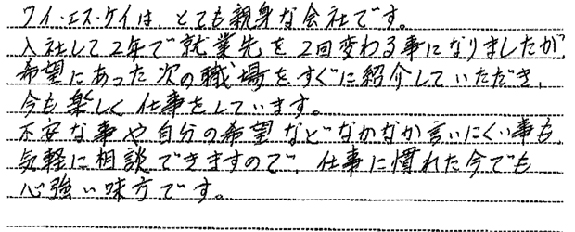 ワイ・エス・ケイは、とても親身な会社です。
入社して2年で就業先を2回変わる事になりましたが、
希望にあった次の職場をすぐに紹介していただき、
今も楽しく仕事をしています。
不安な事や自分の希望などなかなか言いにくい事も、
気軽に相談できますので、仕事に慣れた今でも
心強い味方です。